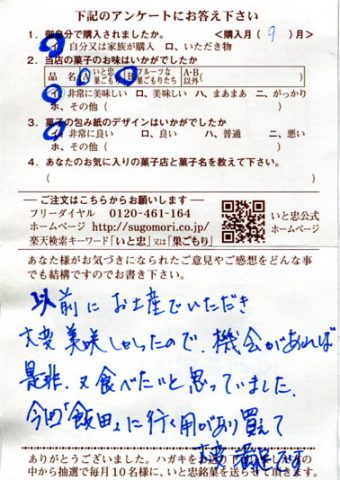 下記のアンケートにお答え下さい
1. 御自分で購入されましたか。 <購入月( 9 )月>
イ、自分又は家族が購入 ロ、いただき物
2. 当店の菓子のお味はいかがでしたか
品 名 A いと忠巣ごもり B フルーツな巣ごもり A・B以外
イ、非常に美味しい ロ、美味しい ハ、まあまあ ニ、がっかり
ホ、その他( )
3. 菓子の包み紙のデザインはいかがでしたか
イ、非常に良い ロ、良い ハ、普通 ニ、悪い
ホ、その他( )
4. あなたのお気に入りの菓子店と菓子名を教えて下さい。
( )
― ご注文はこちらからお願いします ―
フリーダイヤル 0120-461-164
ホームページ http://sugomori.co.jp/
楽天検索キーワード「いと忠」又は「巣ごもり」
いと忠公式
ホームページ
あなた様がお気づきになられたご意見やご感想をどんな事
でも結構ですのでお書き下さい。
以前にお土産でいただき
大変美味しかったので、機会があれば
是非、又食べたいと思っていました。
今回「飯田」に行く用があり買えて
大変満足です
ありがとうございました。ハガキをお送り
の中から抽選で毎月10名様に、いと忠銘菓を送らさせて頂きます。